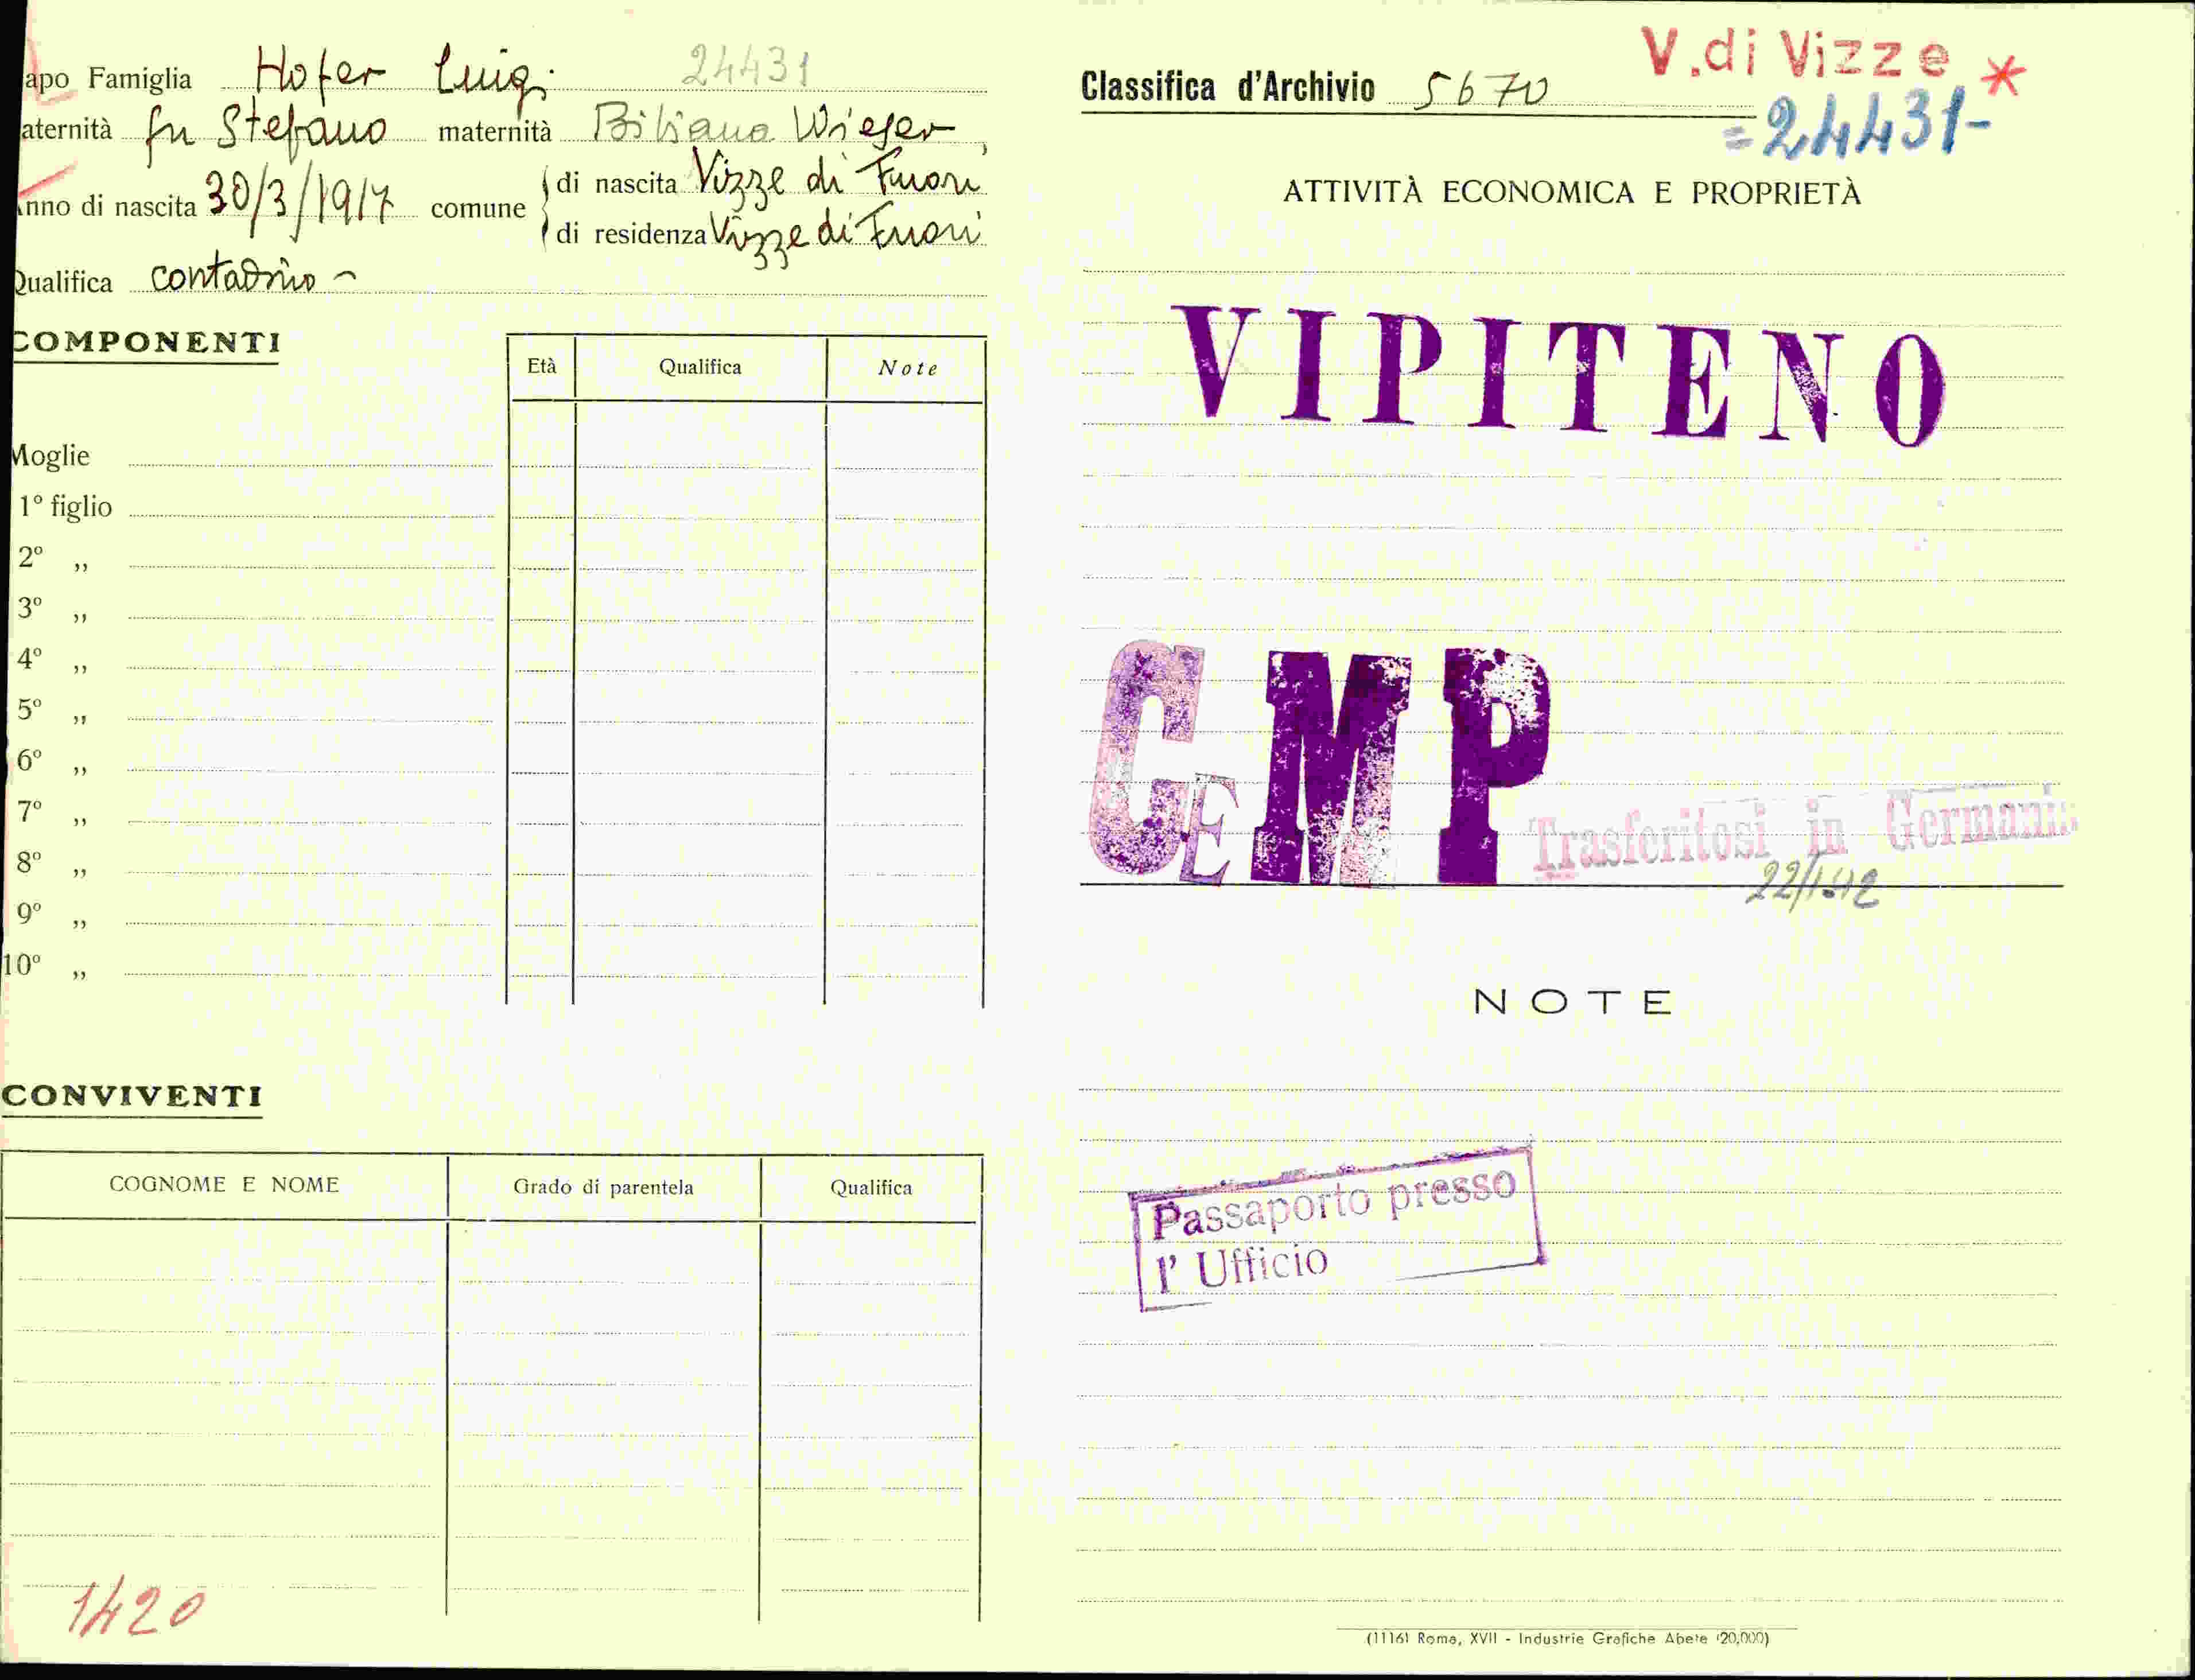 apo Famiglia Hofer Luigi 24431
aternità fu Stefano maternità Bibiana Wieser,
nno di nascita 30/3/1917 comune
di nascita Vizze di Fuori
di residenza Vizze di Fuori
Qualifica contadino -
COMPONENTI
Età Qualifica Note
Moglie
1º figlio
2º „
3º „
4º „
5º „
6º „
7º „
8º „
9º „
10º „
CONVIVENTI
COGNOME E NOME Grado di parentela Qualifica
1420
V. di Vizze *
Classifica d'Archivio 5670
=24431-
ATTIVITÀ ECONOMICA E PROPRIETÀ
VIPITENO
CEMP
Trasferitosi in Germania
22/1-42
NOTE
Passaporto presso
l' Ufficio
(1116) Roma, XVII - Industrie Grafiche Abete (20,000)